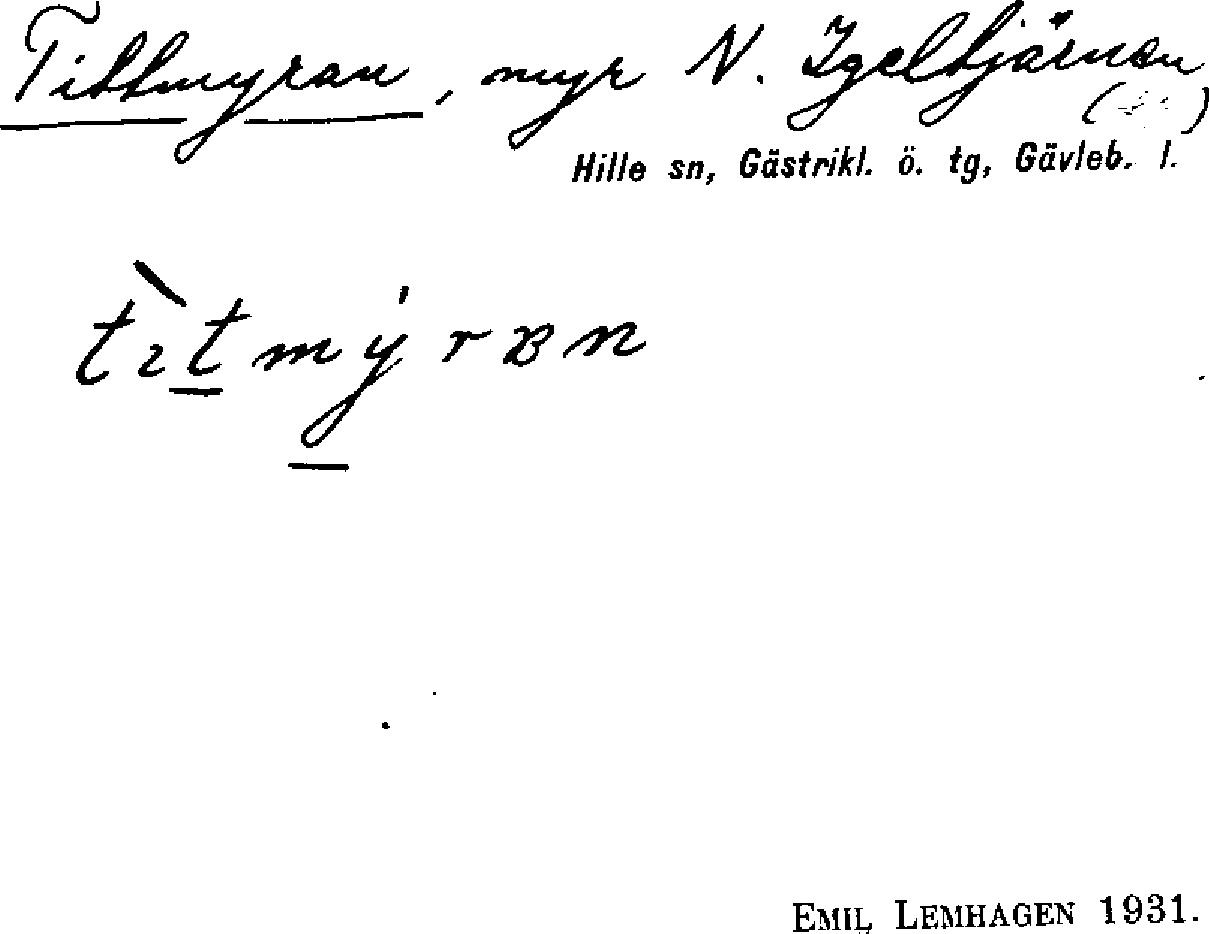 Tittmyran, myr N. Igeltjärnen
Hille sn, Gästrikl. ö. tg, Gävleb. l.
tìtmýrɐn
EMIL LEMHAGEN 1931.